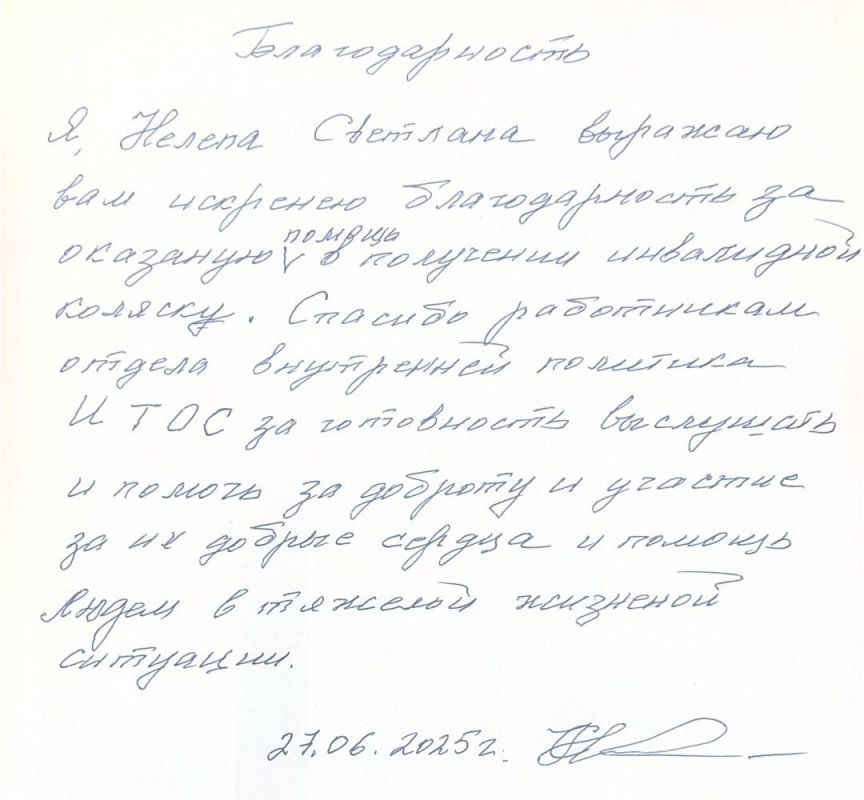 Благодарность
Я, Нелепа Светлана выражаю
вам искренею благодарность за
оказаную помощь в получении инвалидной
коляску. Спасибо работникам
отдела внутренней политика
И ТОС за готовность выслушать
и помочь за доброту и участие
за их добрые сердца и помощь
людем в тяжелой жизненой
ситуации.
27.06.2025г.